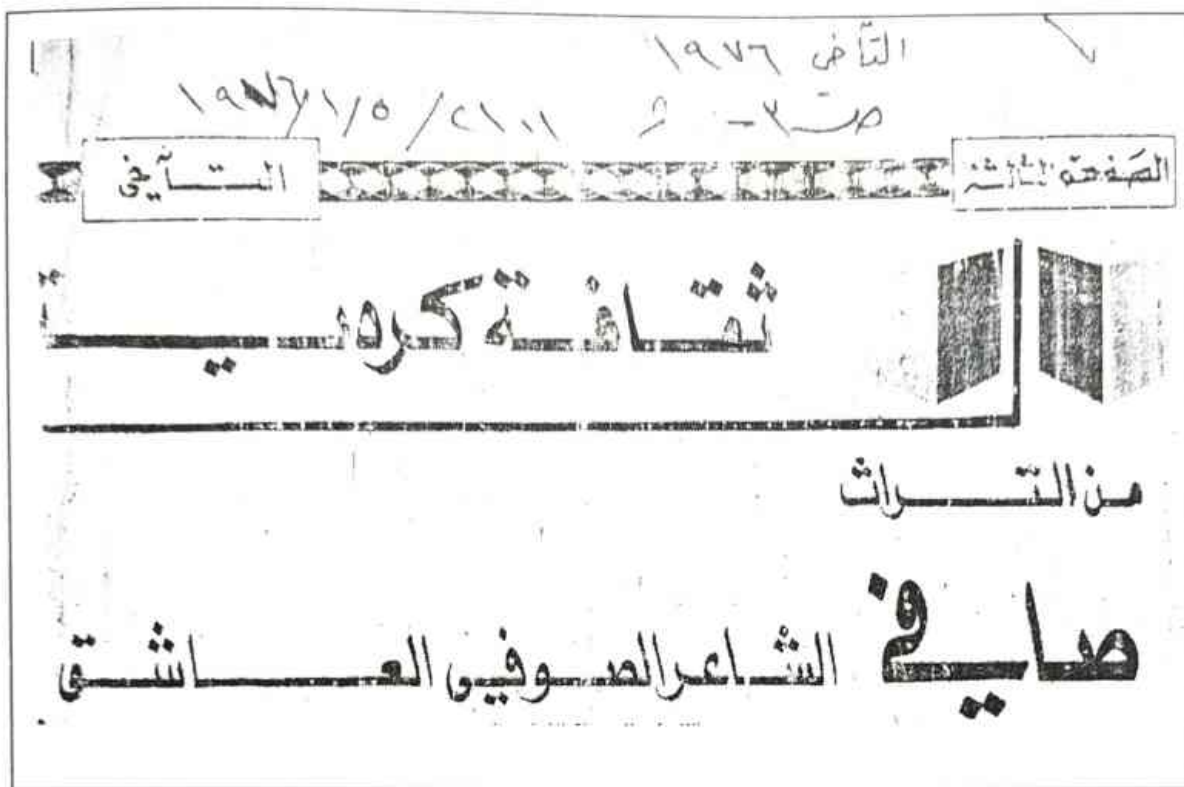 التآخي ١٩٧٦
ص ٣ - ع ٢١٠١ / ١٩٧٦/١/٥
الصفحة الثالثة
التآخي
ثقافة كردية
من التراث
صايفي الشاعر الصوفي العاشق